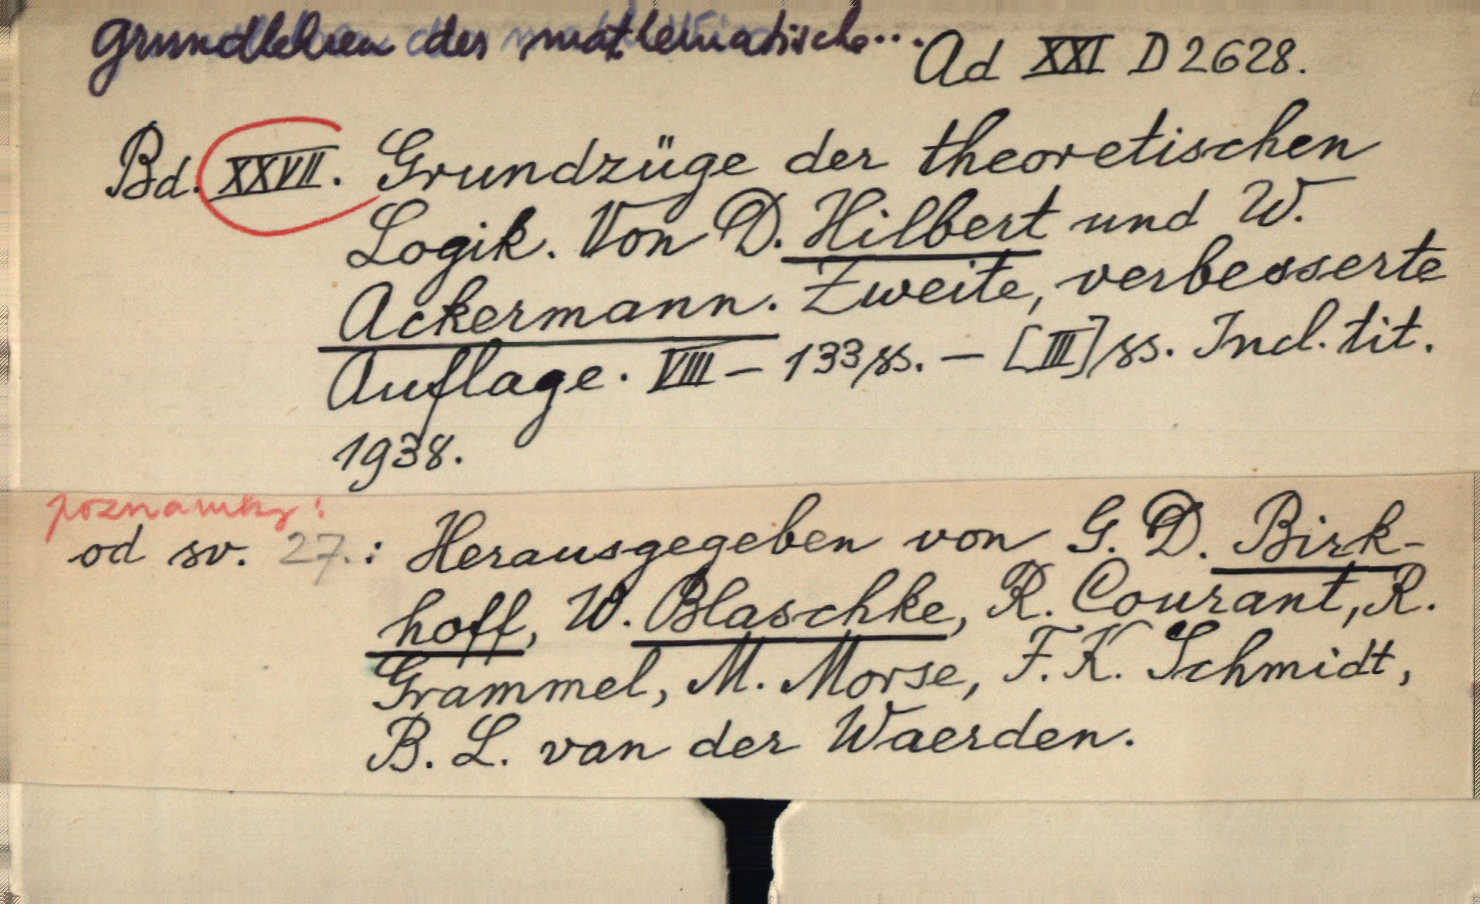 Grundlehren der mathematische...
Ad XXI D 2628.
Bd. XXVII. Grundzüge der theoretischen
Logik. Von D. Hilbert und W.
Ackermann. Zweite, verbesserte
Auflage. VIII – 133 ss. – [III] ss. Incl. tit.
1938.
poznámky:
od sv. 27.: Herausgegeben von G. D. Birk-
hoff, W. Blaschke, R. Courant, R.
Grammel, M. Morse, F. K. Schmidt,
B. L. van der Waerden.